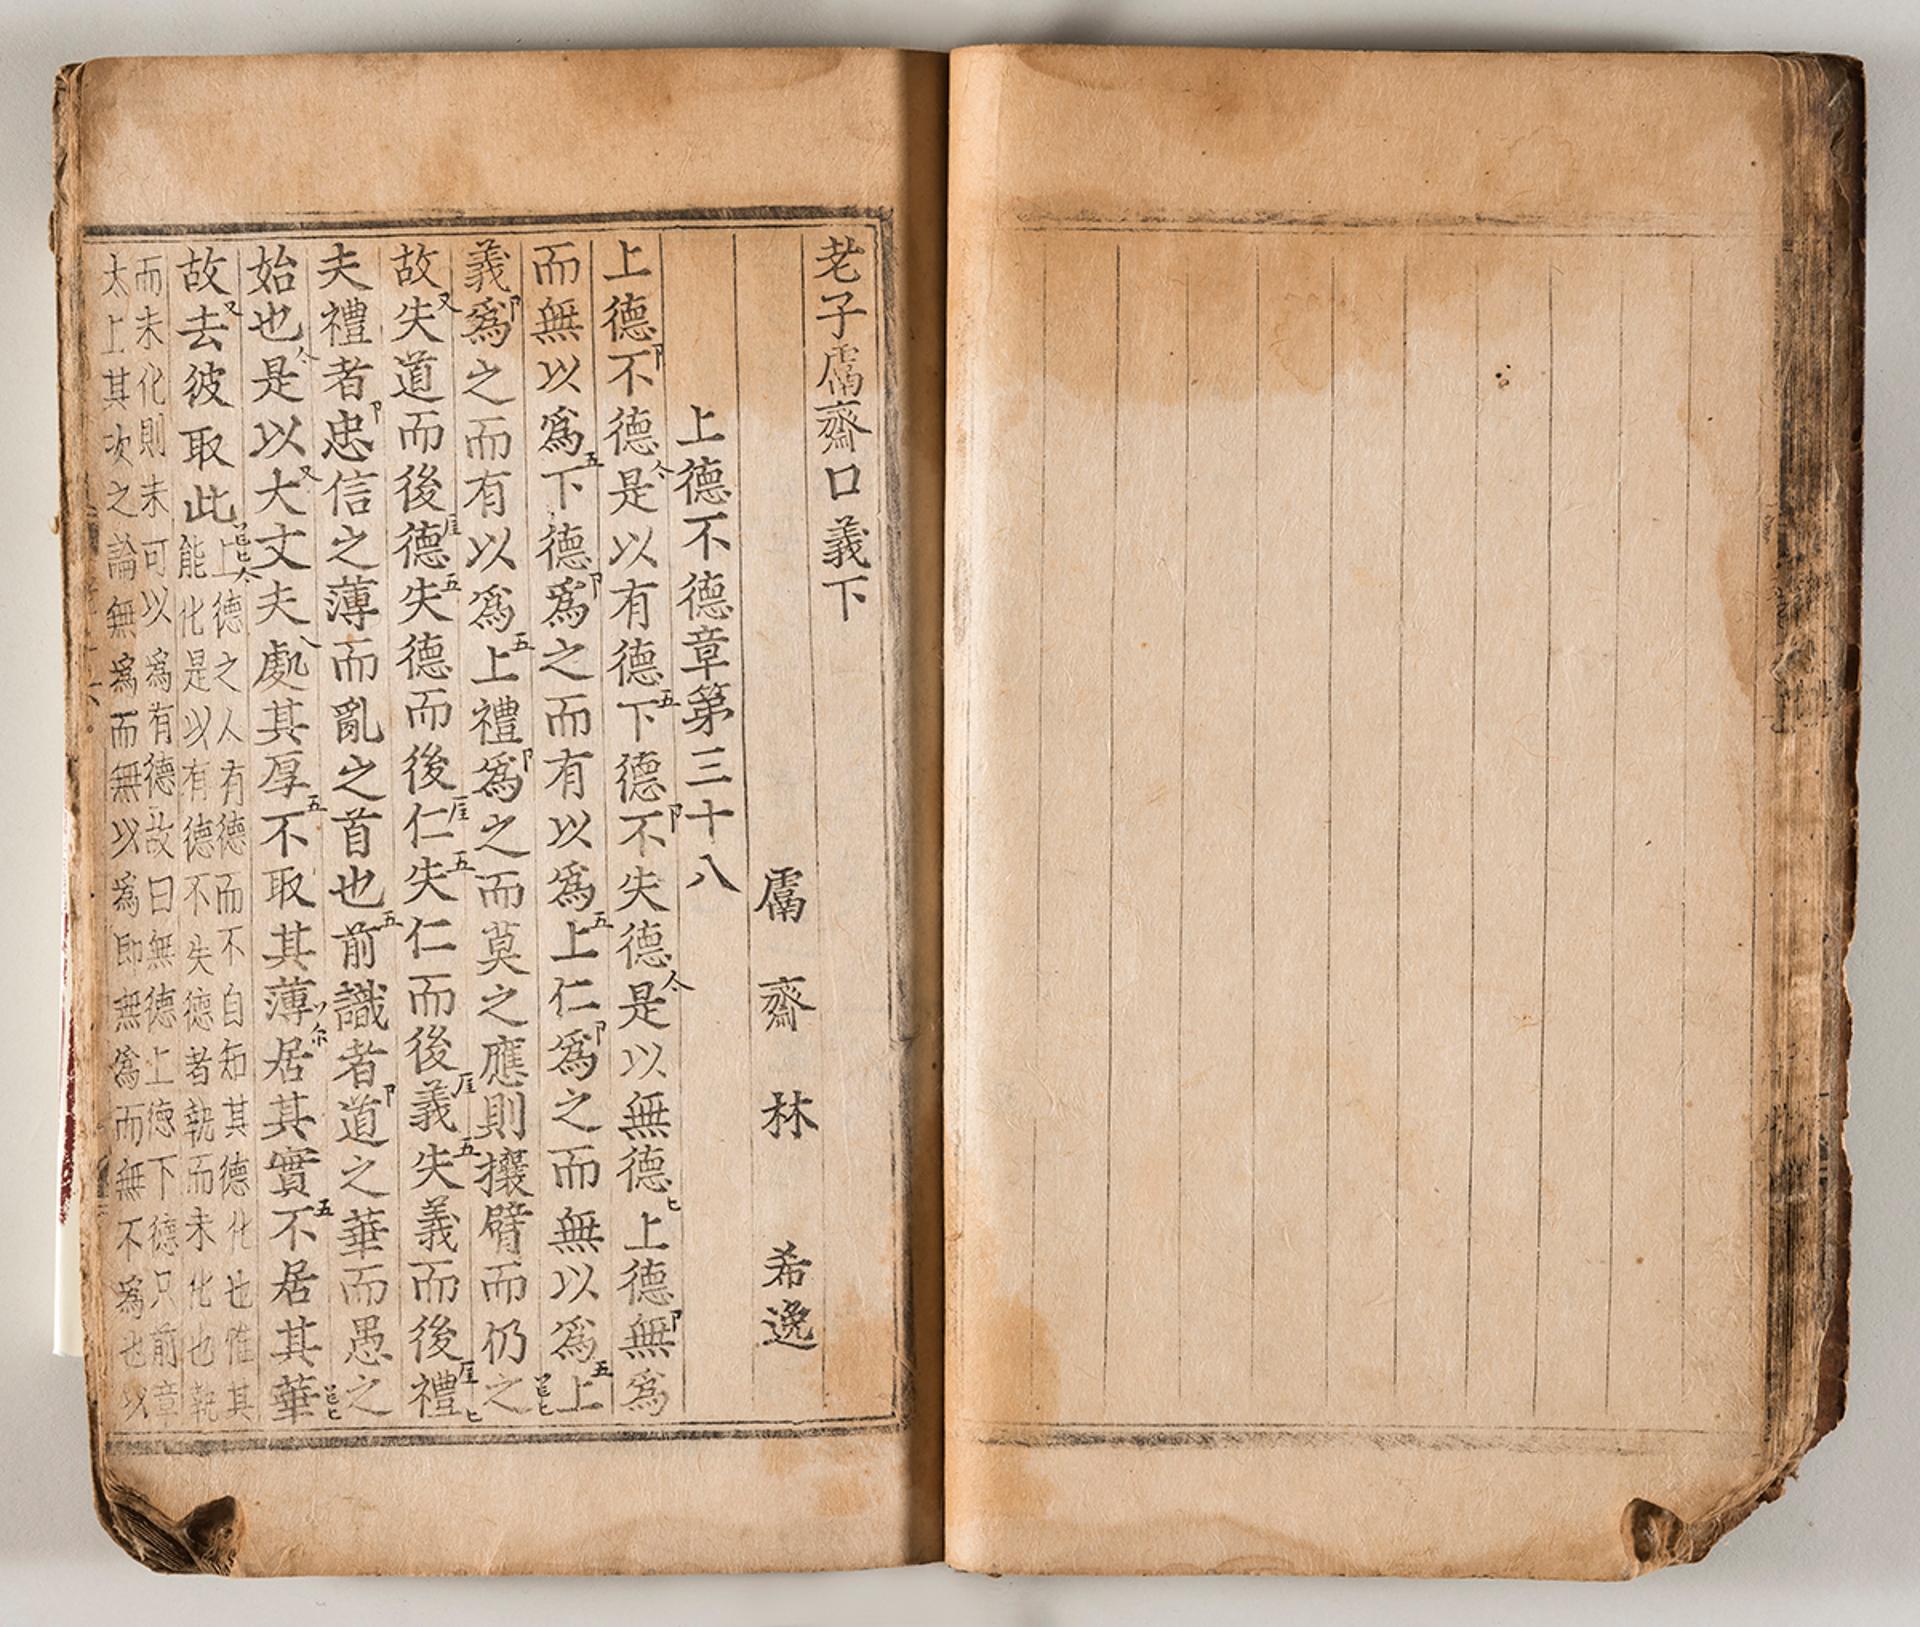 老子鬳齋口義下
鬳齋林希逸
上德不德章第三十八
上德不德是以有德下德不失德是以無德上德無爲
而無以爲下德爲之而有以爲上仁爲之而無以爲上
義爲之而有以爲上禮爲之而莫之應則攘臂而仍之
故失道而後德失德而後仁失仁而後義失義而後禮
夫禮者忠信之薄而亂之首也前識者道之華而愚之
始也是以大丈夫處其厚不取其薄居其實不居其華
故去彼取此
上德之人有德而不自知其德化也惟其
能化是以有德不失德者執而未化也執
而未化則未可以爲有德故曰無德上德下德只前章
太上其次之論無爲而無以爲即無爲而無不爲也以